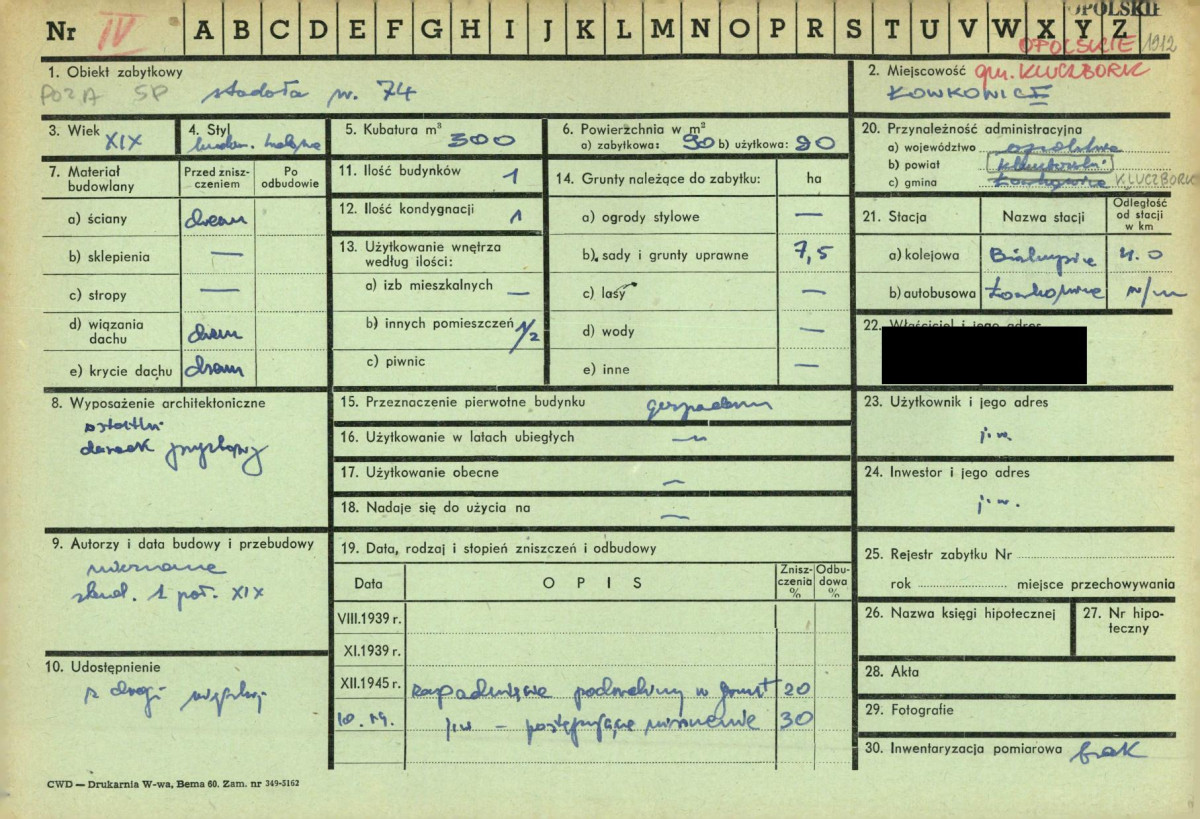 OPOLSKIE
Nr IV A B C D E F G H I J K L M N O P R S T U V W X Y Z
OPOLSKIE 1912
1. Obiekt zabytkowy
POZ.A SP stodoła nr. 74
2. Miejscowość gm. KLUCZBORK
ŁOWKOWICE
3. Wiek XIX
4. Styl
budow.
5. Kubatura m³ 300
6. Powierzchnia w m²
a) zabytkowa: 90 b) użytkowa: 90
20. Przynależność administracyjna
a) województwo opolskie
b) powiat kluczborski
c) gmina Łowkowice KLUCZBORK
7. Materiał budowlany
Przed zniszczeniem
Po odbudowie
a) ściany drewn
b) sklepienia —
c) stropy —
d) wiązania dachu drewn
e) krycie dachu drewn
11. Ilość budynków 1
12. Ilość kondygnacji 1
13. Użytkowanie wnętrza według ilości:
a) izb mieszkalnych —
b) innych pomieszczeń 1/2
c) piwnic
14. Grunty należące do zabytku: ha
a) ogrody stylowe —
b) sady i grunty uprawne 7,5
c) lasy —
d) wody —
e) inne —
21. Stacja
Nazwa stacji
Odległość od stacji w km
a) kolejowa 4.0
b) autobusowa Łowkowice n/m
22. Właściciel i jego adres
8. Wyposażenie architektoniczne
15. Przeznaczenie pierwotne budynku
16. Użytkowanie w latach ubiegłych —
17. Użytkowanie obecne —
18. Nadaje się do użycia na —
23. Użytkownik i jego adres
j.w.
24. Inwestor i jego adres
j.w.
9. Autorzy i data budowy i przebudowy
nieznane
1 poł. XIX
10. Udostępnienie
z drogi
19. Data, rodzaj i stopień zniszczeń i odbudowy
Data
O P I S
Zniszczenia %
Odbudowa %
VIII.1939 r.
XI.1939 r.
XII.1945 r. zapadnięcie podwaliny w grunt 20
j.w — postępujące niszczenie 30
25. Rejestr zabytku Nr
rok miejsce przechowywania
26. Nazwa księgi hipotecznej
27. Nr hipoteczny
28. Akta
29. Fotografie
30. Inwentaryzacja pomiarowa brak
CWD — Drukarnia W-wa, Bema 60. Zam. nr 349-5162